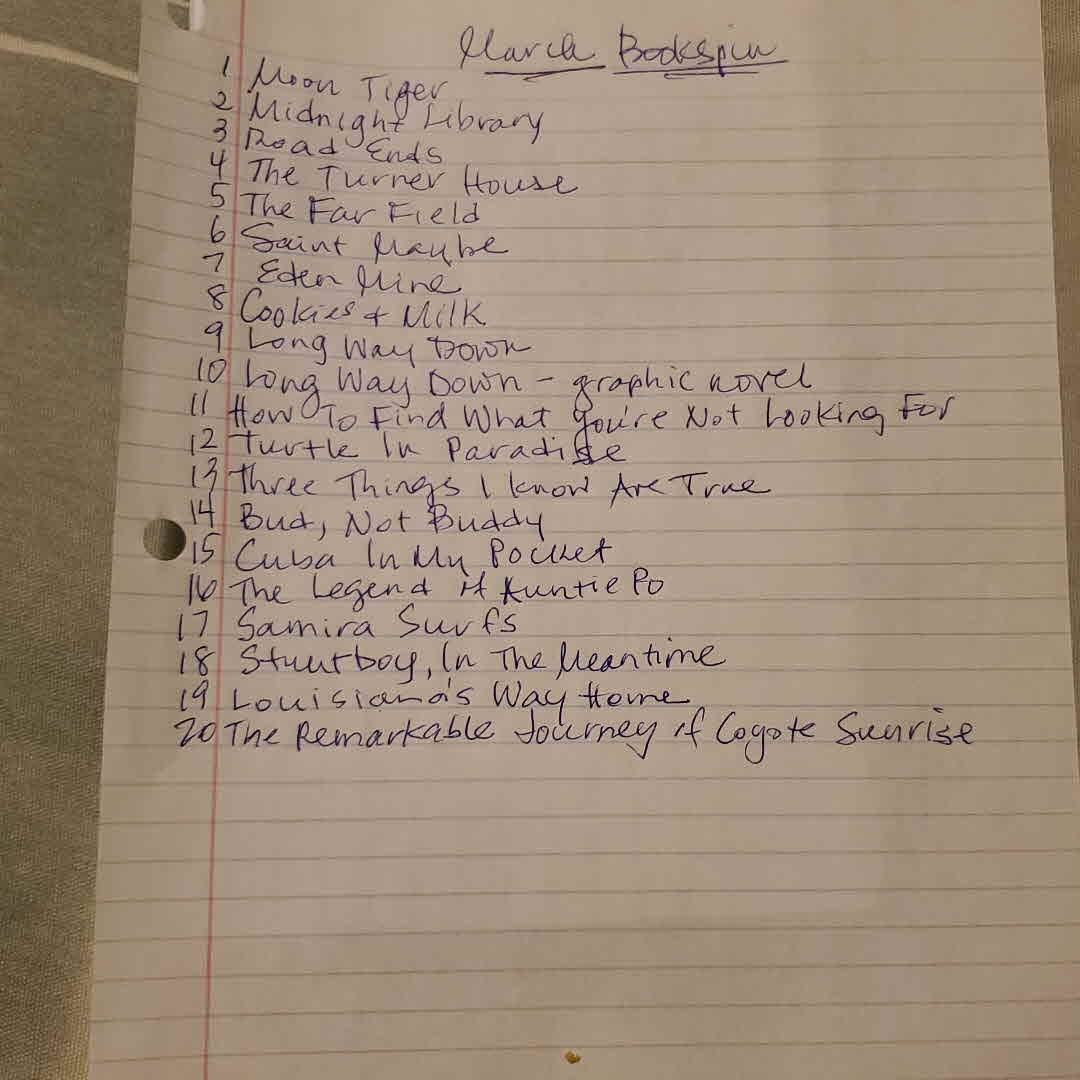 March Bookspin
1 Moon Tiger
2 Midnight Library
3 Road Ends
4 The Turner House
5 The Far Field
6 Saint Maybe
7 Eden Mine
8 Cookies + Milk
9 Long Way Down
10 Long Way Down - graphic novel
11 How To Find What You're Not Looking For
12 Turtle In Paradise
13 Three Things I Know Are True
14 Bud, Not Buddy
15 Cuba In My Pocket
16 The Legend of Auntie Po
17 Samira Surfs
18 Stuntboy, In The Meantime
19 Louisiana's Way Home
20 The Remarkable Journey of Coyote Sunrise